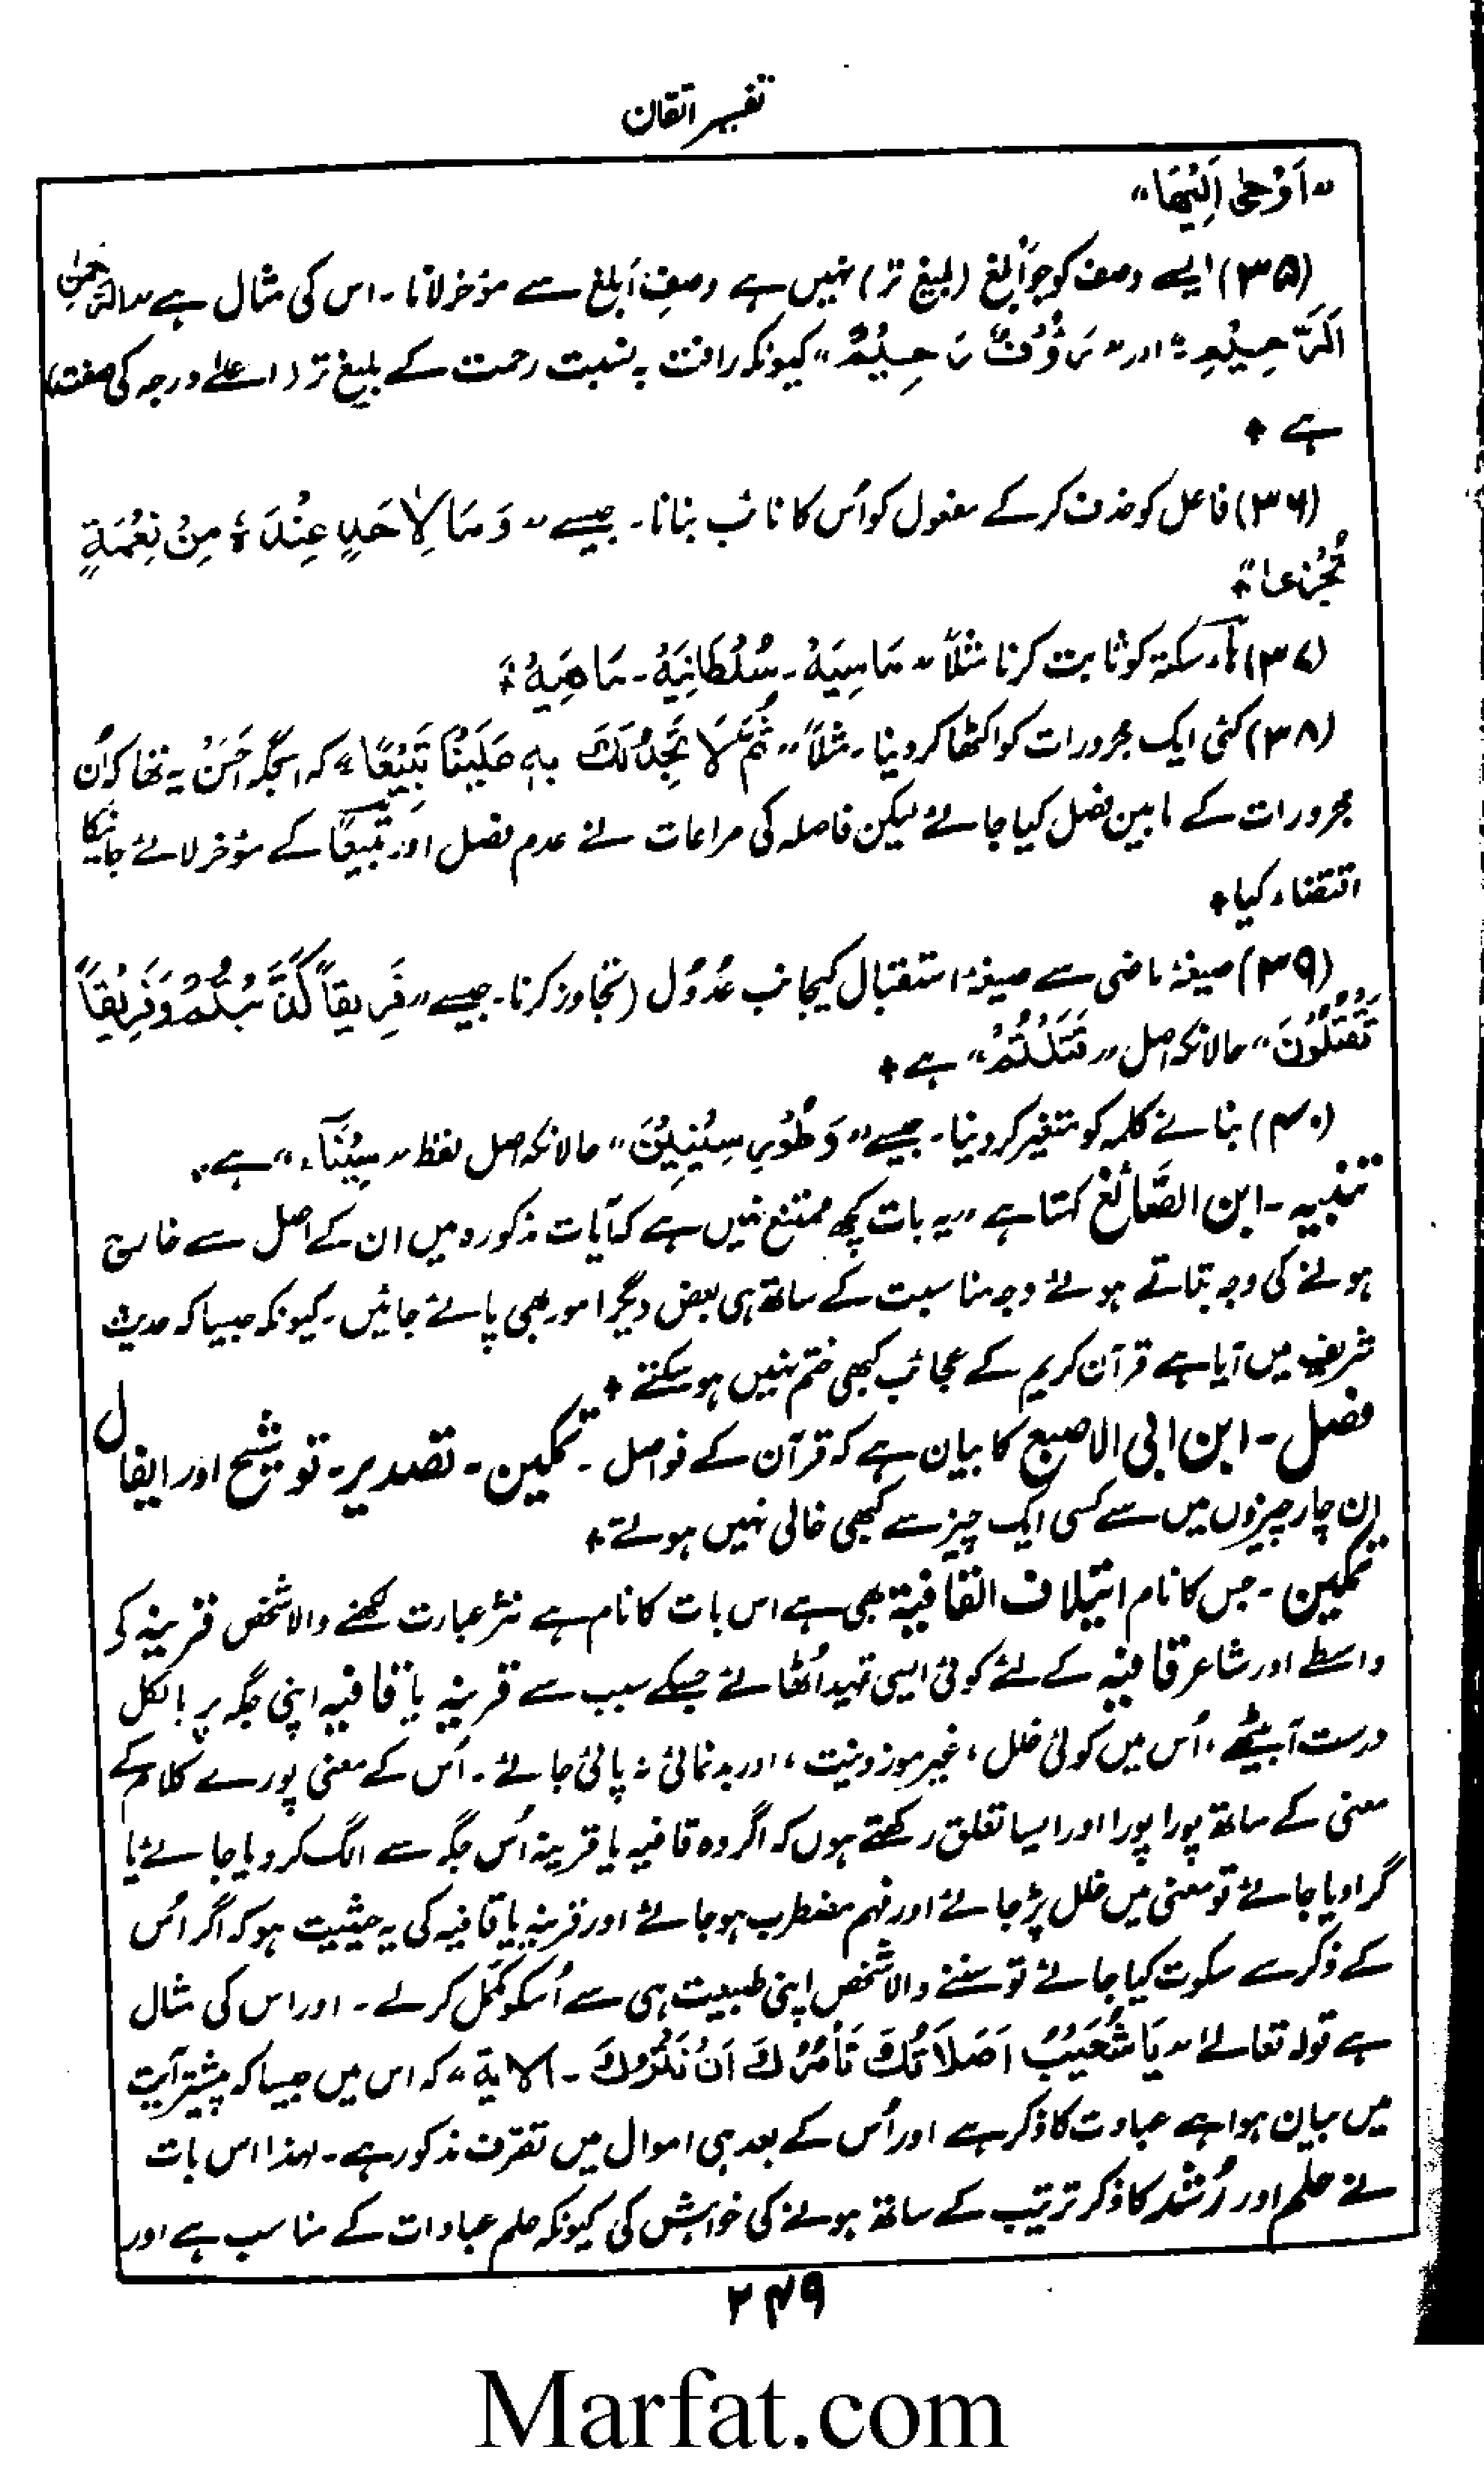 تفسیر اتقان
"اَوْحٰی اِلَیْھَا"
(۳۵) ایسے وصف کو جو اَبلغ (بلیغ تر) نہیں ہے وصفِ اَبلغ سے مؤخر لانا۔ اس کی مثال ہے "الرَّحمٰن
اَلرَّحِیْمِ" اور "رَؤُفٌ رَحِیْمٌ" کیونکہ رافت بہ نسبت رحمت کے بلیغ تر (اعلےٰ درجہ کی صفت)
ہے +
(۳۶) فاعل کو حذف کر کے مفعول کو اُس کا نائب بنانا۔ جیسے "وَمَا لِاَحَدٍ عِنْدَہٗ مِنْ نِعْمَۃٍ
تُجْزٰی" +
(۳۷) ہآء سکتۃ کو ثابت کرنا مثلاً "مَالِیَہْ۔ سُلْطَانِیَہْ۔ مَاھِیَہْ +
(۳۸) کئی ایک مجرورات کو اکٹھا کر دینا۔ مثلاً "ثُمَّ لَا تَجِدُ لَکَ بِہٖ عَلَیْنَا تَبِیْعًا" کہ اسجگہ اَحْسَنْ یہ تھا کہ اُن
مجرورات کے مابین فصل کیا جائے لیکن فاصلہ کی مراعات نے عدم فصل اور تَبِیْعًا کے مؤخر لائے جانیکا
اقتضاء کیا +
(۳۹) صیغۂ ماضی سے صیغۂ استقبال کیجانب عُدُوْل (تجاوز کرنا۔ جیسے "فَرِیقاً کَذَّبْتُمْ وَفَرِیْقاً
تَقْتُلُوْنَ" حالانکہ اصل "قَتَلْتُمْ" ہے +
(۴۰) بنائے کلمہ کو متغیر کر دینا۔ جیسے "وَطُوْرِ سِیْنِیْنَ" حالانکہ اصل لفظ "سِیْنَآء" ہے۔
تنبیہ۔ ابن الصَّائغ کہتا ہے "یہ بات کچھ ممتنع نہیں ہے کہ آیات مذکورہ میں ان کے اصل سے خارج
ہونے کی وجہ بتاتے ہوئے وجہ مناسبت کے ساتھ ہی بعض دیگر امور بھی پائے جائیں۔ کیونکہ جیسا کہ حدیث
شریف میں آیا ہے قرآن کریم کے عجائب کبھی ختم نہیں ہو سکتے +
فصل۔ ابن ابی الاصبع کا بیان ہے کہ قرآن کے فواصل۔ تمکین۔ تصدیر۔ توشیح اور ایغال
اِن چار چیزوں میں سے کسی ایک چیز سے کبھی خالی نہیں ہوتے +
تمکین۔ جس کا نام ائتلاف القافیۃ بھی ہے اس بات کا نام ہے نثر عبارت لکھنے والا شخص قرینہ کی
واسطے اور شاعر قافیہ کے لئے کوئی ایسی تمہید اُٹھائے جسکے سبب سے قرینہ یا قافیہ اپنی جگہ پر بالکل
درست آ بیٹھے، اُس میں کوئی خلل، غیر موزونیت، اور بدنمائی نہ پائی جائے۔ اُس کے معنی پورے کلام کے
معنی کے ساتھ پورا پورا اور ایسا تعلق رکھتے ہوں کہ اگر وہ قافیہ یا قرینہ اُس جگہ سے الگ کر دیا جائے یا
گرا دیا جائے تو معنی میں خلل پڑ جائے اور فہم مضطرب ہو جائے اور قرینہ یا قافیہ کی یہ حیثیت ہو کہ اگر اُس
کے ذکر سے سکوت کیا جائے تو سننے والا شخص اپنی طبیعت ہی سے اُسکو مکمل کرلے۔ اور اس کی مثال
ہے قولہ تعالےٰ "یَا شُعَیْبُ اَصَلَاتُکَ تَاْمُرُکَ اَنْ نَتْرُکَ۔ الایۃ" کہ اس میں جیسا کہ پیشتر آیت
میں بیان ہوا ہے عبادت کا ذکر ہے اور اُس کے بعد ہی اموال میں تصرّف مذکور ہے۔ لہٰذا اس بات
نے حلم اور رُشد کا ذکر ترتیب کے ساتھ ہونے کی خواہش کی کیونکہ حلم عبادات کے مناسب ہے اور
۲۴۹
Marfat.com